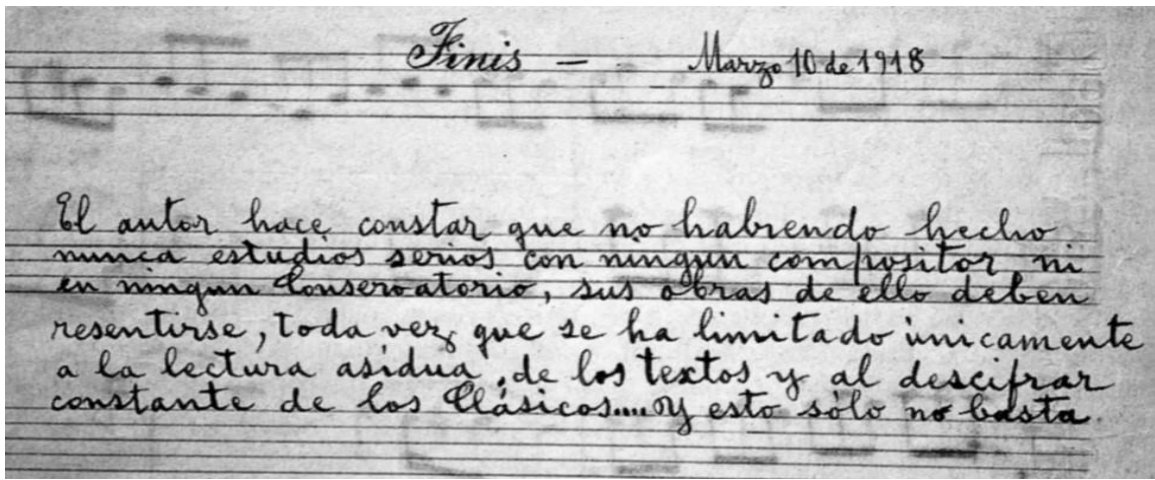 Finis — Marzo 10 de 1918
El autor hace constar que no habiendo hecho
nunca estudios serios con ningun compositor ni
en ningun Conservatorio, sus obras de ello deben
resentirse, toda vez que se ha limitado únicamente
a la lectura asídua, de los textos y al descifrar
constante de los Clásicos.... Y esto sólo no basta.